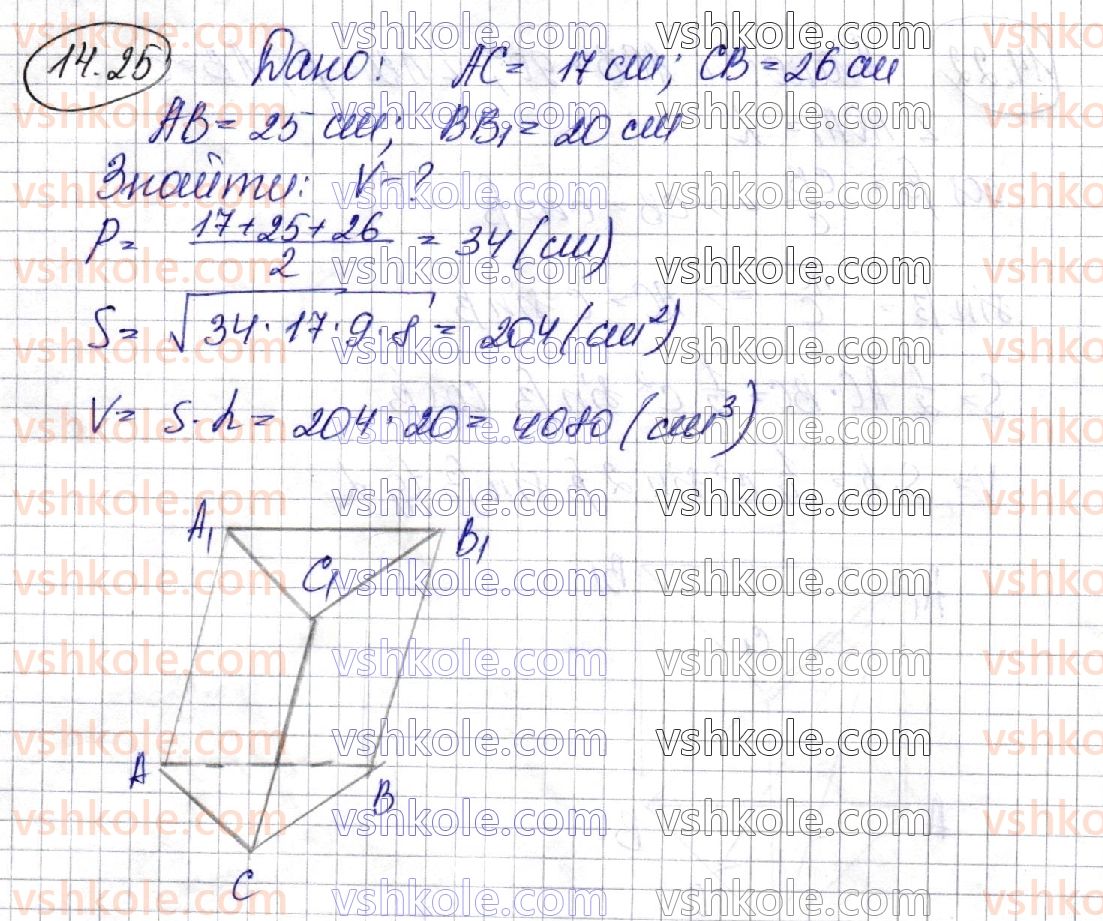 14.25 Дано: AC = 17 см; CB = 26 см
AB = 25 см; BB₁ = 20 см
Знайти: V - ?
P = \frac{17+25+26}{2} = 34 (см)
S = \sqrt{34·17·9·8} = 204 (см²)
V = S·h = 204·20 = 4080 (см³)
A₁
B₁
C₁
A
B
C
vshkole.com